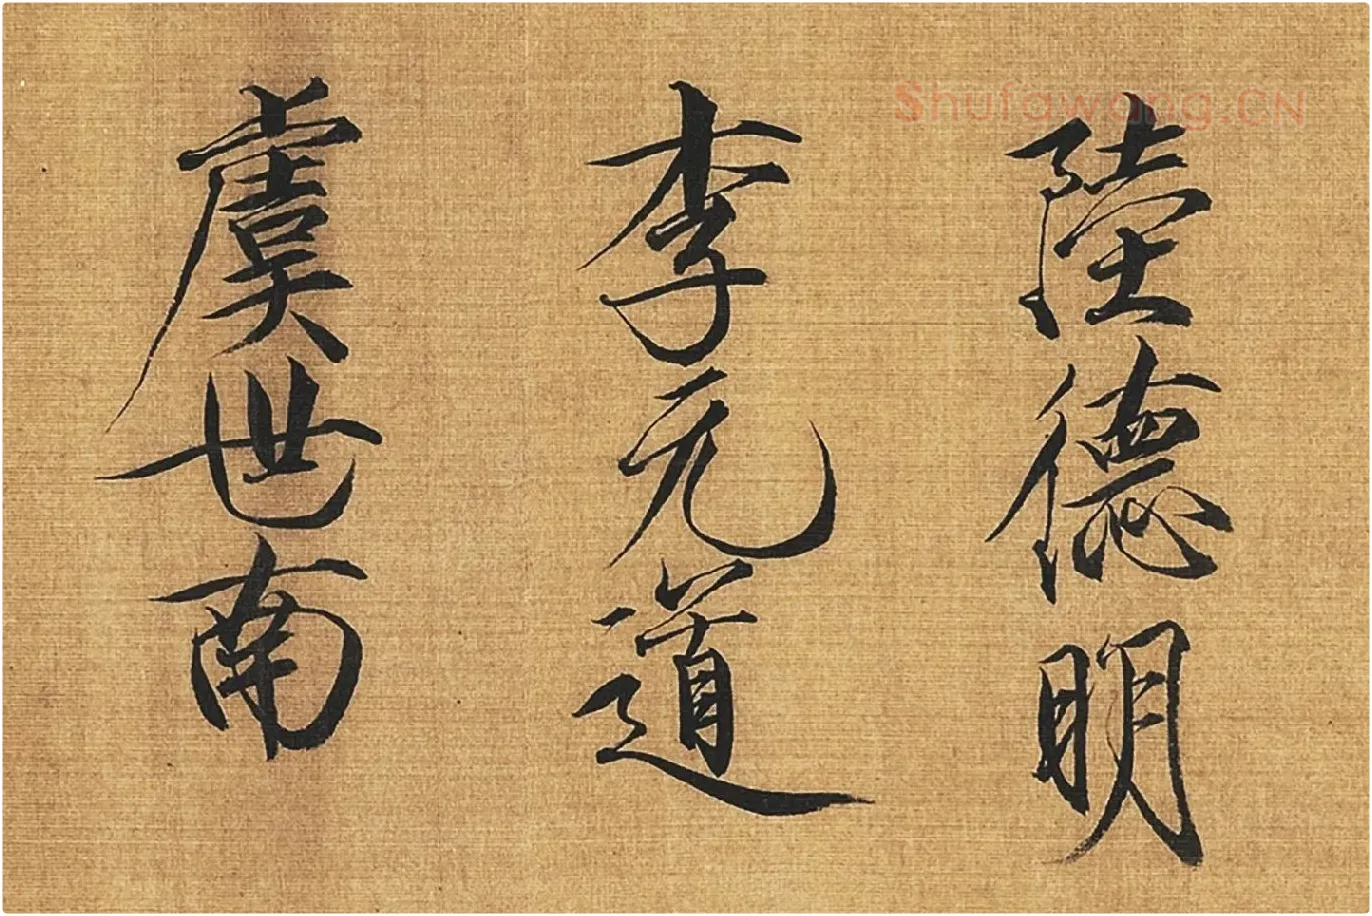 Shufawang.CN
陸德明
李元道
虞世南